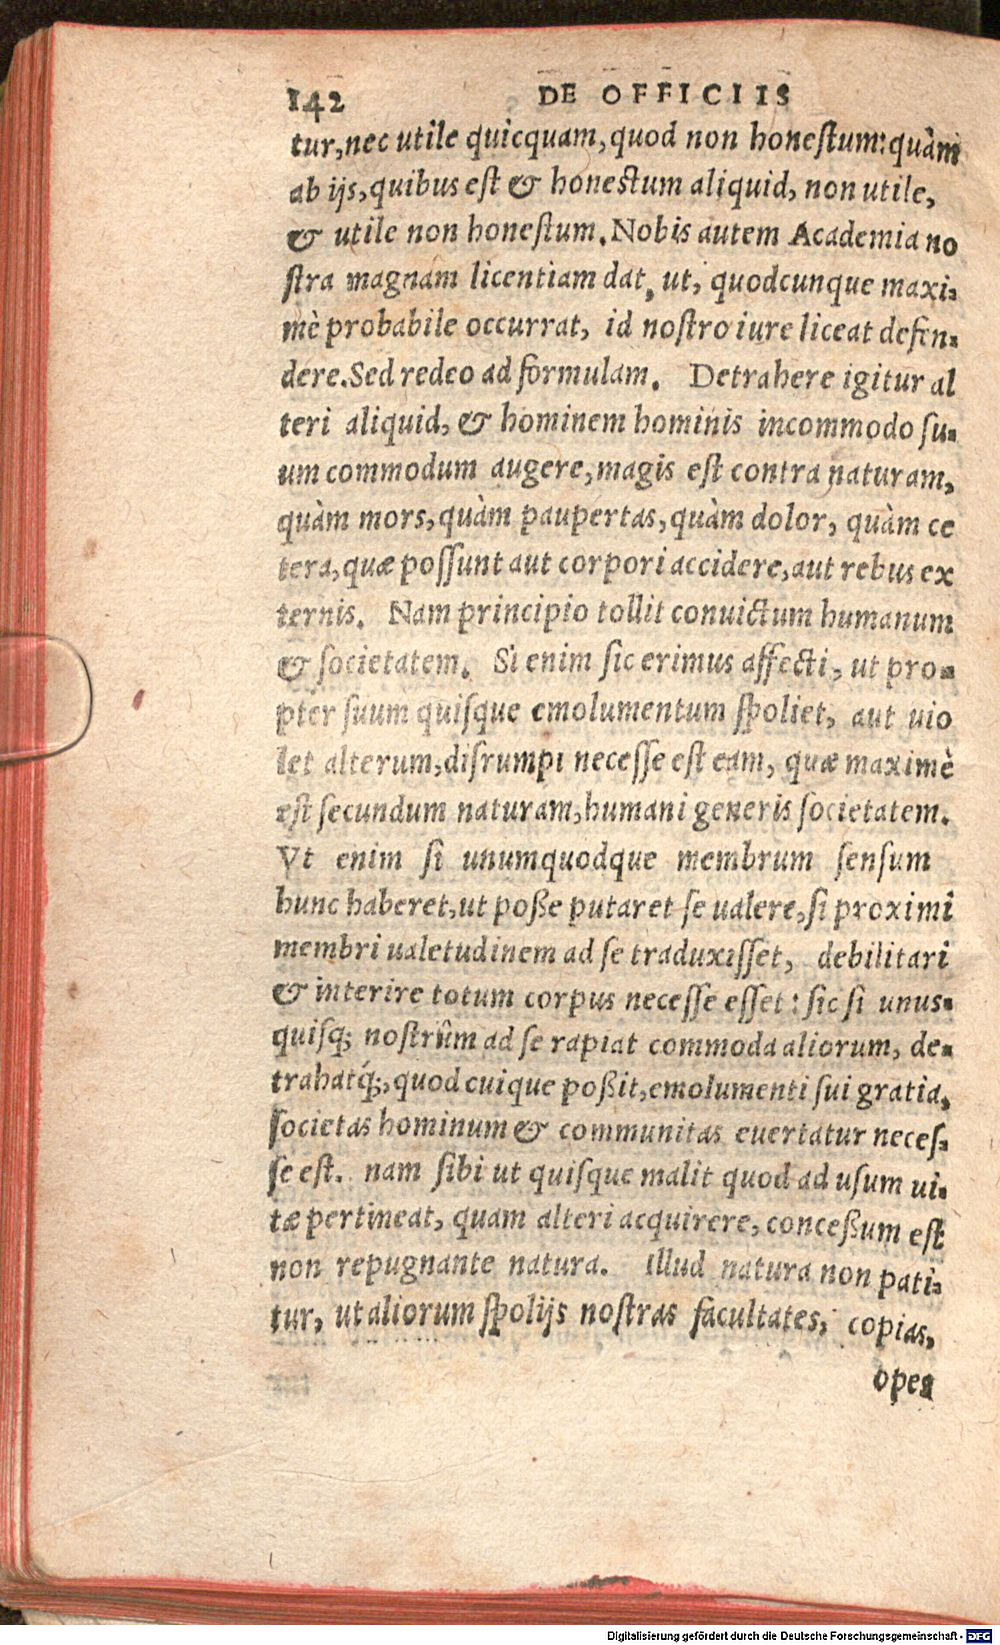 142 DE OFFICIIS
tur, nec utile quicquam, quod non honeſtum: quàm
ab ijs, quibus eſt & honeſtum aliquid, non utile,
& utile non honeſtum. Nobis autem Academia no
ſtra magnam licentiam dat, ut, quodcunque maxi-
mè probabile occurrat, id noſtro iure liceat defen-
dere. Sed redeo ad formulam. Detrahere igitur al
teri aliquid, & hominem hominis incommodo ſu-
um commodum augere, magis eſt contra naturam,
quàm mors, quàm paupertas, quàm dolor, quàm ce
tera, quæ poſſunt aut corpori accidere, aut rebus ex
ternis. Nam principio tollit conuictum humanum
& ſocietatem. Si enim ſic erimus affecti, ut pro-
pter ſuum quiſque emolumentum ſpoliet, aut uio
let alterum, diſrumpi neceſſe eſt eam, quæ maximè
eſt ſecundum naturam, humani generis ſocietatem.
Vt enim ſi unumquodque membrum ſenſum
hunc haberet, ut poße putaret ſe ualere, ſi proximi
membri ualetudinem ad ſe traduxiſſet, debilitari
& interire totum corpus neceſſe eſſet: ſic ſi unus-
quiſq; noſtrûm ad ſe rapiat commoda aliorum, de-
trahatq́;, quod cuique poßit, emolumenti ſui gratia,
ſocietas hominum & communitas euertatur neceſ-
ſe eſt. nam ſibi ut quiſque malit quod ad uſum ui-
tæ pertineat, quam alteri acquirere, conceßum eſt
non repugnante natura. Illud natura non pati-
tur, ut aliorum ſpolijs noſtras facultates, copias,
opes
Digitalisierung gefördert durch die Deutsche Forschungsgemeinschaft - DFG